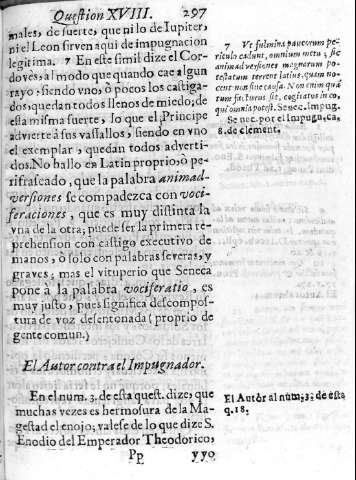 Question XVIII. 297
males, de suerte, que ni lo de Iupiter,
ni el Leon sirven aqui de impugnacion
legitima. 7 En este simil dize el Cor-
dovès, al modo que quando cae algun
rayo, siendo vno, ò pocos los castiga-
dos, quedan todos llenos de miedo; de
esta misma suerte, lo que el Principe
advierte à sus vassallos, siendo en vno
el exemplar, quedan todos adverti-
dos. No hallo en Latin proprio, ò pe-
rifraseado, que la palabra animad-
versiones se compadezca con voci-
feraciones, que es muy distinta la
vna de la otra; puede ser la primera re-
prehension con castigo executivo de
manos, ò solo con palabras severas, y
graves; mas el vituperio que Seneca
pone à la palabra vociferatio, es
muy justo, pues significa descompos-
tura de voz desentonada (proprio de
gente comun.)
El Autor contra el Impugnador.
En el num. 3. de esta quest. dize, que
muchas vezes es hermosura de la Ma-
gestad el enojo; valese de lo que dize S.
Enodio del Emperador Theodorico,
Pp yyo
7 Vt fulmina paucorum pe-
riculo cadunt, omnium metu, sic
animadversiones magnarum po-
testatum terrent latius, quam no-
cent non sine causa. Non enim quã
tum fecturus sit, cogitatur in eo,
qui omnia potest. Senec. Impug.
Senec. por el Impug. ca,
8. de clement.
El Autor al num. 3; de esta
q. 18;